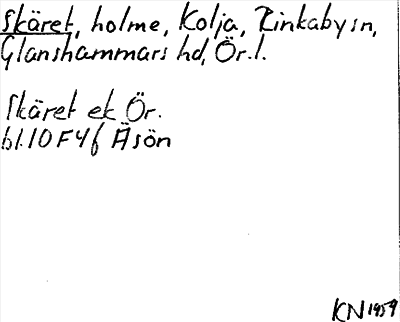 Skäret, holme, Kolja, Rinkabysn,
Glanshammars hd, Ör.l.
Skäret ek Ör.
bl.10F4f Äsön
KN 1959